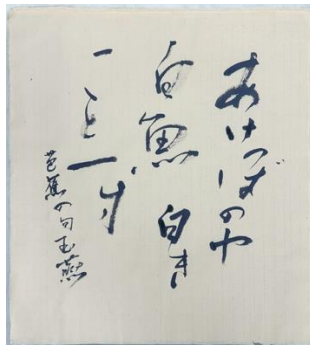 あけぼのや
白魚 白き
こと一寸
芭蕉の句 玉燕